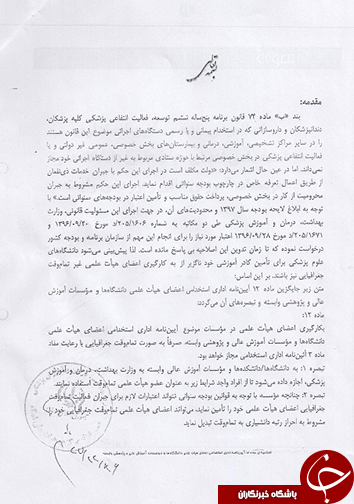 مقدمه:
بند «ب» ماده ۷۴ قانون برنامه پنج‌ساله ششم توسعه، فعالیت انتفاعی پزشکی کلیه پزشکان،
دندانپزشکان و داروسازانی که در استخدام پیمانی و یا رسمی دستگاه‌های اجرائی موضوع این قانون هستند
را در سایر مراکز تشخیصی، آموزشی، درمانی و بیمارستان‌های بخش خصوصی، عمومی غیر دولتی و یا
فعالیت انتفاعی پزشکی در بخش خصوصی مرتبط با حوزه ستادی مربوط به غیر از دستگاه اجرائی خود مجاز
نمی‌داند. اما در عین حال اشعار می‌دارد: «دولت مکلف است در اجرای این حکم با جبران خدمات ذی‌نفعان
از طریق اعمال تعرفه خاص در چارچوب بودجه سنواتی اقدام نماید. اجرای این حکم مشروط به جبران
محرومیت از کار در بخش خصوصی، پرداخت حقوق مناسب و تأمین اعتبار در بودجه‌های سنواتی است.» با
توجه به ابلاغ لایحه بودجه سال ۱۳۹۷ و محدودیت‌های آن، در جهت اجرای این مسئولیت قانونی، وزارت
بهداشت، درمان و آموزش پزشکی طی دو مکاتبه به شماره ۲۰۵/۱۶۰۶/د مورخ ۱۳۹۶/۰۹/۲۰ و
۲۰۵/۱۶۷۱/د مورخ ۱۳۹۶/۰۹/۲۸ اعتبار مورد نیاز را برای انجام این مهم از سازمان برنامه و بودجه کشور
درخواست نموده که تا زمان تدوین این اصلاحیه بی پاسخ مانده است. لذا پیش‌بینی می‌شود دانشگاه‌های
علوم پزشکی برای تأمین کادر آموزشی خود ناگزیر از به کارگیری اعضای هیأت علمی غیر تمام‌وقت
جغرافیایی نیز باشند. بر این اساس:
متن زیر جایگزین ماده ۱۲ آیین‌نامه اداری استخدامی اعضای هیأت علمی دانشگاه‌ها و مؤسسات آموزش
عالی و پژوهشی وابسته و تبصره‌های آن می‌گردد:
ماده ۱۲:
بکارگیری اعضای هیأت علمی در مؤسسات موضوع آیین‌نامه اداری استخدامی اعضای هیأت علمی
دانشگاه‌ها و مؤسسات آموزش عالی و پژوهشی وابسته، صرفاً به صورت تمام‌وقت جغرافیایی با رعایت مفاد
ماده ۳ آئین‌نامه اداری استخدامی مجاز خواهد بود.
تبصره ۱: به دانشگاه‌ها/دانشکده‌ها و مؤسسات آموزش عالی وابسته به وزارت بهداشت، درمان و آموزش
پزشکی، اجازه داده می‌شود تا از افراد واجد شرایط زیر به عنوان عضو هیأت علمی تمام‌وقت استفاده نمایند.
تبصره ۲: چنانچه مؤسسه با توجه به قوانین بودجه سنواتی نتواند اعتبارات لازم برای جبران فعالیت تمام‌وقت
جغرافیایی اعضای هیأت علمی خود را تأمین نماید، می‌تواند اعضای هیأت علمی تمام‌وقت جغرافیایی خود را
مشروط به احراز رتبه دانشیاری به تمام‌وقت تبدیل نماید.
باشگاه خبرنگاران